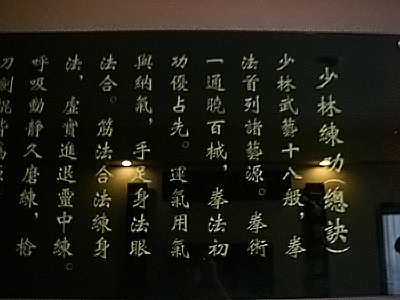 少林練功(總訣)
少林武藝十八般，拳
法首列諸藝源。拳術
一通曉百械，拳法初
功優占先。運氣用氣
與納氣，手足身法眼
法合。筋法合法練身
法，虛實進退靈中練。
呼吸動靜久磨練，槍
刀劍棍